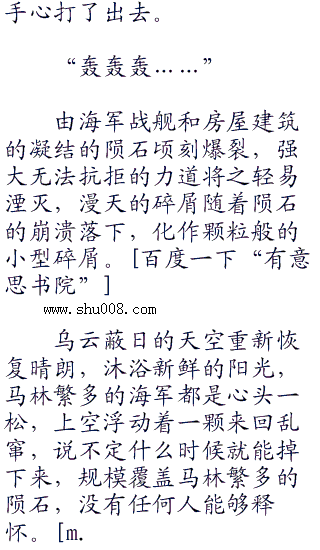 手心打了出去。
“轰轰轰……”
由海军战舰和房屋建筑
的凝结的陨石顷刻爆裂，强
大无法抗拒的力道将之轻易
湮灭，漫天的碎屑随着陨石
的崩溃落下，化作颗粒般的
小型碎屑。[百度一下“有意
思书院”]
www.shu008.com
乌云蔽日的天空重新恢
复晴朗，沐浴新鲜的阳光，
马林繁多的海军都是心头一
松，上空浮动着一颗来回乱
窜，说不定什么时候就能掉
下来，规模覆盖马林繁多的
陨石，没有任何人能够释
怀。[m.